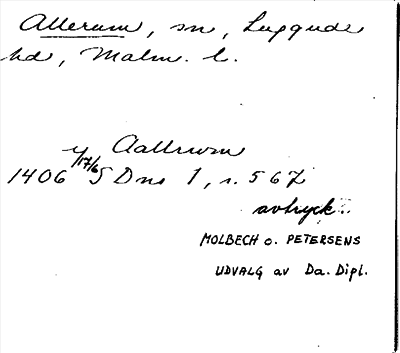 Allerum, sn, Luggude
hd, Malm. l.
y Aallrum
1406 17/6 SDns 1, s. 567
avtryck:
MOLBECH o. PETERSENS
UDVALG av Da. Dipl.